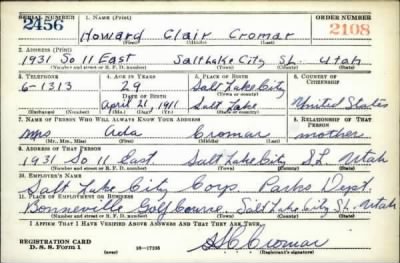 SERIAL NUMBER 1. NAME (Print) ORDER NUMBER
2456 Howard Clair Cromar 2108
(First) (Middle) (Last)
2. ADDRESS (Print)
1931 So 11 East Salt Lake City S.L. Utah
(Number and street or R. F. D. number) (Town) (County) (State)
3. TELEPHONE 4. AGE IN YEARS 5. PLACE OF BIRTH 6. COUNTRY OF CITIZENSHIP
6-1313 29 Salt Lake City
DATE OF BIRTH (Town or county)
April 21 1911 Salt Lake United States
(Exchange) (Number) (Mo.) (Day) (Yr.) (State or country)
7. NAME OF PERSON WHO WILL ALWAYS KNOW YOUR ADDRESS 8. RELATIONSHIP OF THAT PERSON
Mrs Ada Cromar mother
(Mr., Mrs., Miss) (First) (Middle) (Last)
9. ADDRESS OF THAT PERSON
1931 So 11 East Salt Lake City S.L. Utah
(Number and street or R. F. D. number) (Town) (County) (State)
10. EMPLOYER'S NAME
Salt Lake City Corp. Parks Dept.
11. PLACE OF EMPLOYMENT OR BUSINESS
Bonneville Golf Course, Salt Lake City S.L. Utah
(Number and street or R. F. D. number) (Town) (County) (State)
I AFFIRM THAT I HAVE VERIFIED ABOVE ANSWERS AND THAT THEY ARE TRUE.
REGISTRATION CARD
D. S. S. Form 1 (over) 16-17105 Cromar
(Registrant's signature)